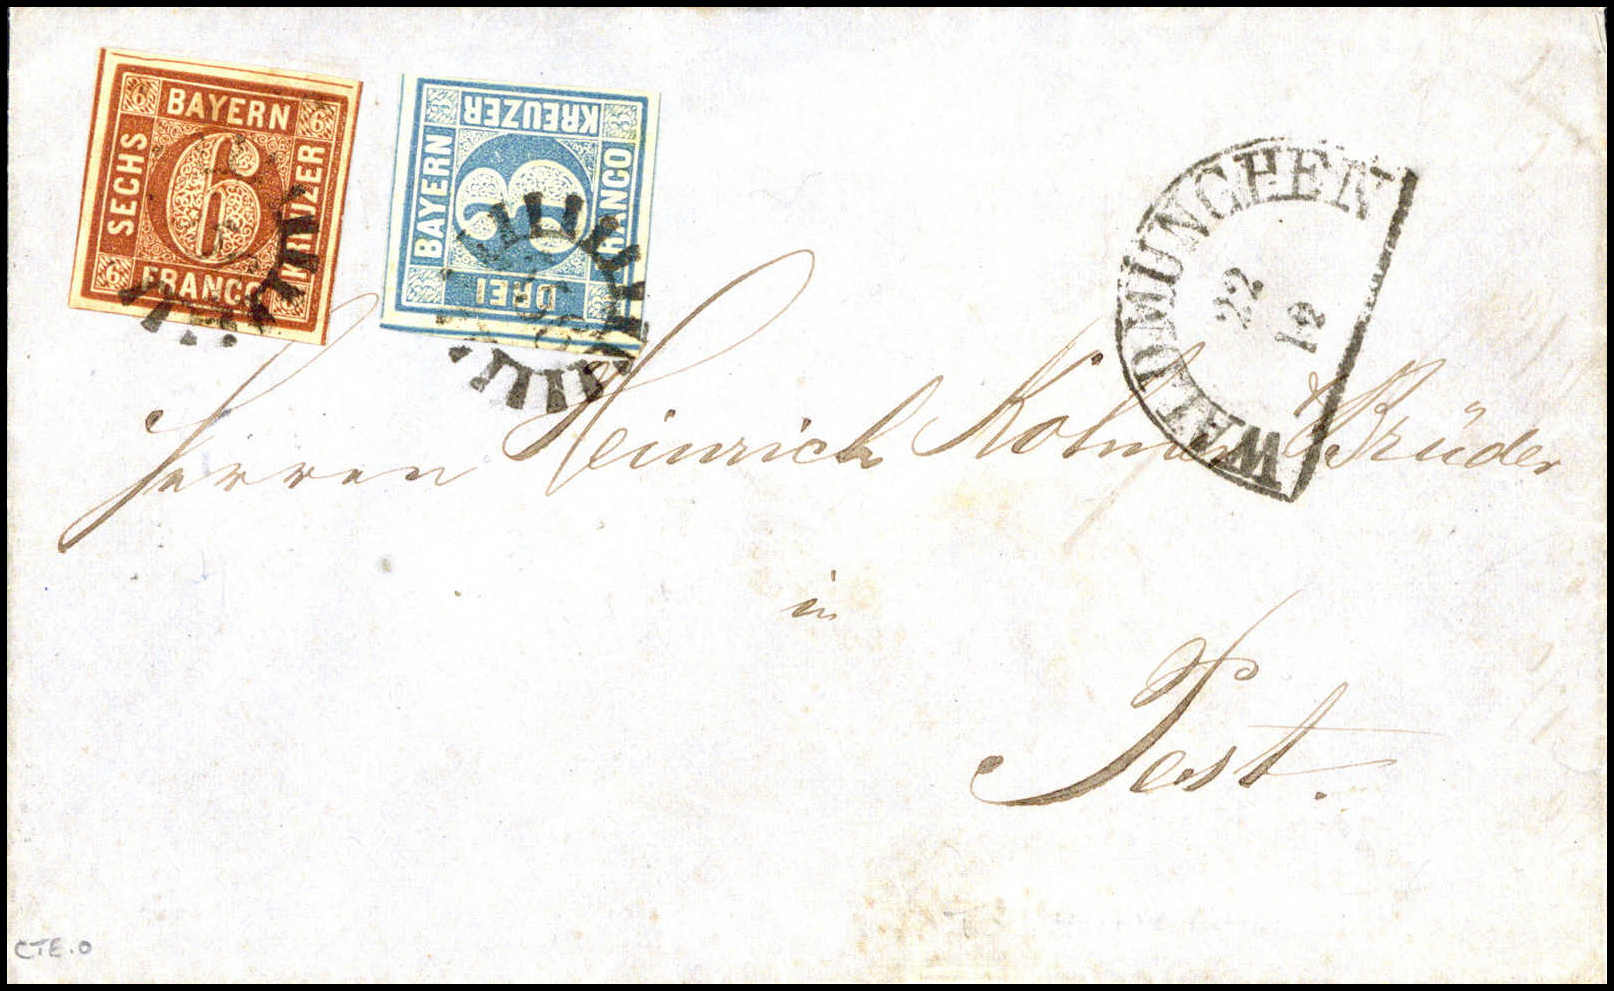 6 BAYERN 6
SECHS 6 KREUZER
6 FRANCO
KREUZER
BAYERN 3 FRANCO
DREI
WALDMÜNCHEN
22
12
Herren Heinrich Kohner & Brüder
in
Pest.
CTE.O